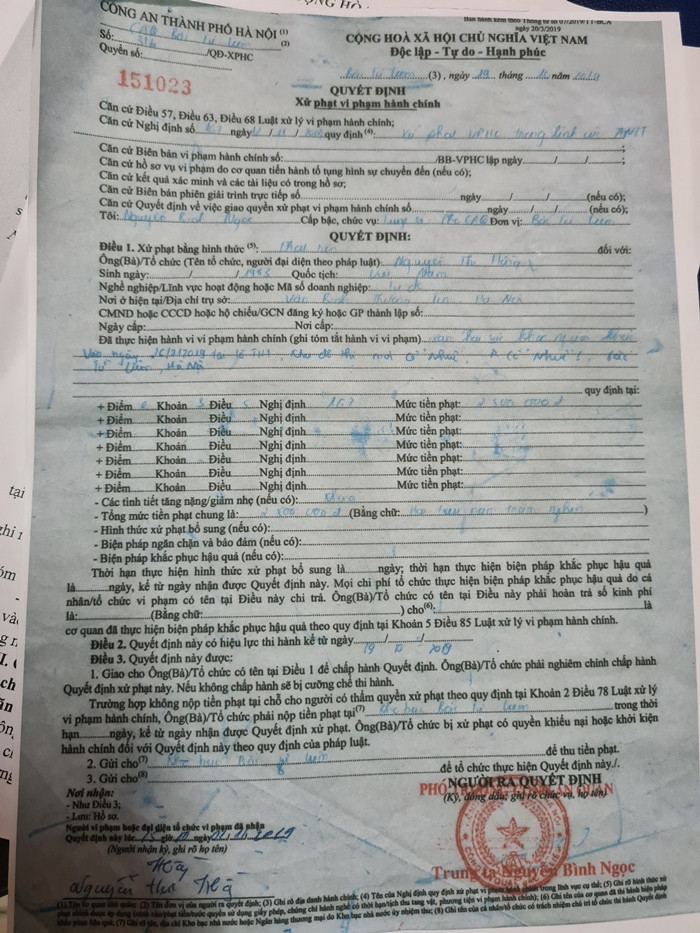 Ban hành kèm theo Thông tư số 07/2019/TT-BCA
ngày 20/3/2019
CÔNG AN THÀNH PHỐ HÀ NỘI (1)
CỘNG HOÀ XÃ HỘI CHỦ NGHĨA VIỆT NAM
CAQ Bắc Từ Liêm (2)
Độc lập - Tự do - Hạnh phúc
Số:
Quyển số: /QĐ-XPHC
Bắc Từ Liêm (3), ngày 19 tháng 10 năm 2019
151023
QUYẾT ĐỊNH
Xử phạt vi phạm hành chính
Căn cứ Điều 57, Điều 63, Điều 68 Luật xử lý vi phạm hành chính;
Căn cứ Nghị định số 167 ngày quy định (4). Xử phạt VPHC trong lĩnh vực ANTT
Căn cứ Biên bản vi phạm hành chính số: /BB-VPHC lập ngày / / ;
Căn cứ hồ sơ vụ vi phạm do cơ quan tiến hành tố tụng hình sự chuyển đến (nếu có);
Căn cứ kết quả xác minh và các tài liệu có trong hồ sơ;
Căn cứ Biên bản phiên giải trình trực tiếp số ngày / / (nếu có);
Căn cứ Quyết định về việc giao quyền xử phạt vi phạm hành chính số ngày / / (nếu có);
Tôi: Nguyễn Bình Ngọc Cấp bậc, chức vụ: Trung tá Phó CAQ Đơn vị: Bắc Từ Liêm
QUYẾT ĐỊNH:
Điều 1. Xử phạt bằng hình thức (5): Phạt tiền đối với:
Ông(Bà)/Tổ chức (Tên tổ chức, người đại diện theo pháp luật): Nguyễn Thị
Sinh ngày: / / 1983 Quốc tịch: Việt Nam
Nghề nghiệp/Lĩnh vực hoạt động hoặc Mã số doanh nghiệp: Tự do
Nơi ở hiện tại/Địa chỉ trụ sở: Vân Bình Thường Tín Hà Nội
CMND hoặc CCCD hoặc hộ chiếu/GCN đăng ký hoặc GP thành lập số:
Ngày cấp: Nơi cấp:
Đã thực hiện hành vi vi phạm hành chính (ghi tóm tắt hành vi vi phạm)
Vào ngày 26/2/2019 tại Khu đô thị mới Cổ Nhuế, P Cổ Nhuế 1, Bắc
Từ Liêm, Hà Nội
quy định tại:
+ Điểm Khoản 3 Điều 5 Nghị định 167 Mức tiền phạt: 2 500 000đ
+ Điểm Khoản Điều Nghị định Mức tiền phạt:
+ Điểm Khoản Điều Nghị định Mức tiền phạt:
+ Điểm Khoản Điều Nghị định Mức tiền phạt:
+ Điểm Khoản Điều Nghị định Mức tiền phạt:
+ Điểm Khoản Điều Nghị định Mức tiền phạt:
- Các tình tiết tăng nặng/giảm nhẹ (nếu có): Không
- Tổng mức tiền phạt chung là: 2 500 000đ (Bằng chữ: Hai triệu năm trăm nghìn )
- Hình thức xử phạt bổ sung (nếu có):
- Biện pháp ngăn chặn và bảo đảm (nếu có):
- Biện pháp khắc phục hậu quả (nếu có):
Thời hạn thực hiện hình thức xử phạt bổ sung là ngày; thời hạn thực hiện biện pháp khắc phục hậu quả
là ngày, kể từ ngày nhận được Quyết định này. Mọi chi phí tổ chức thực hiện biện pháp khắc phục hậu quả do cá
nhân/tổ chức vi phạm có tên tại Điều này chi trả. Ông(Bà)/Tổ chức có tên tại Điều này phải hoàn trả số kinh phí
là: (Bằng chữ: ) cho(6): là
cơ quan đã thực hiện biện pháp khắc phục hậu quả theo quy định tại Khoản 5 Điều 85 Luật xử lý vi phạm hành chính.
Điều 2. Quyết định này có hiệu lực thi hành kể từ ngày 19 / 10 / 2019
Điều 3. Quyết định này được:
1. Giao cho Ông(Bà)/Tổ chức có tên tại Điều 1 để chấp hành Quyết định. Ông(Bà)/Tổ chức phải nghiêm chỉnh chấp hành
Quyết định xử phạt này. Nếu không chấp hành sẽ bị cưỡng chế thi hành.
Trường hợp không nộp tiền phạt tại chỗ cho người có thẩm quyền xử phạt theo quy định tại Khoản 2 Điều 78 Luật xử lý
vi phạm hành chính, Ông(Bà)/Tổ chức phải nộp tiền phạt tại(7) Kho bạc Bắc Từ Liêm trong thời
hạn ngày, kể từ ngày nhận được Quyết định xử phạt. Ông(Bà)/Tổ chức bị xử phạt có quyền khiếu nại hoặc khởi kiện
hành chính đối với Quyết định này theo quy định của pháp luật.
2. Gửi cho(7) Kho bạc Bắc Từ Liêm để thu tiền phạt.
3. Gửi cho(8) để tổ chức thực hiện Quyết định này./.
Nơi nhận:
NGƯỜI RA QUYẾT ĐỊNH
- Như Điều 3;
(Ký, đóng dấu; ghi rõ chức vụ, họ tên)
- Lưu: Hồ sơ.
Người vi phạm hoặc đại diện tổ chức vi phạm đã nhận
Quyết định này lúc giờ ngày 2019
(Người nhận ký, ghi rõ họ tên)
Nguyễn Thị
Trung tá Nguyễn Bình Ngọc